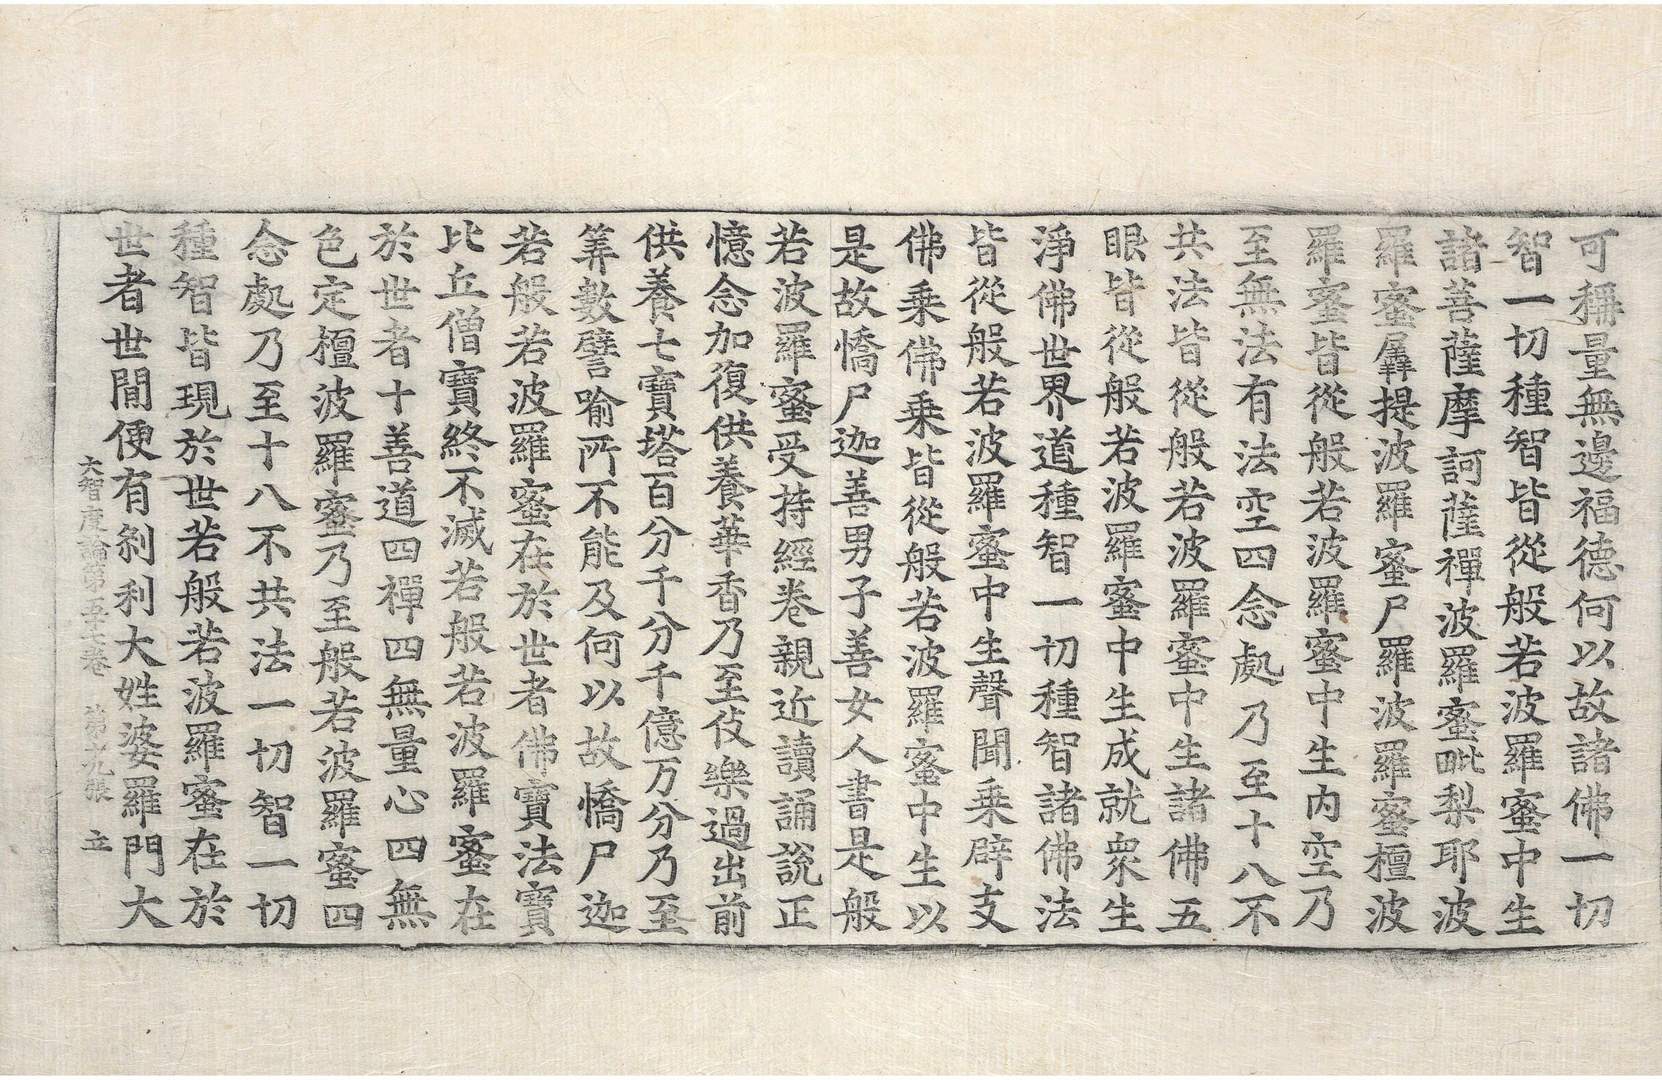 可稱量無邊福德何以故諸佛一切
智一切種智皆從般若波羅蜜中生
諸菩薩摩訶薩禪波羅蜜毗梨耶波
羅蜜羼提波羅蜜尸羅波羅蜜檀波
羅蜜皆從般若波羅蜜中生內空乃
至無法有法空四念處乃至十八不
共法皆從般若波羅蜜中生諸佛五
眼皆從般若波羅蜜中生成就衆生
淨佛世界道種智一切種智諸佛法
皆從般若波羅蜜中生聲聞乘辟支
佛乘佛乘皆從般若波羅蜜中生以
是故憍尸迦善男子善女人書是般
若波羅蜜受持經卷親近讀誦說正
憶念加復供養華香乃至伎樂過出前
供養七寶塔百分千分千億万分乃至
筭數譬喻所不能及何以故憍尸迦
若般若波羅蜜在於世者佛寶法寶
比丘僧寶終不滅若般若波羅蜜在
於世者十善道四禪四無量心四無
色定檀波羅蜜乃至般若波羅蜜四
念處乃至十八不共法一切智一切
種智皆現於世若般若波羅蜜在於
世者世間便有剎利大姓婆羅門大
大智度論第五十七卷 第九張 立